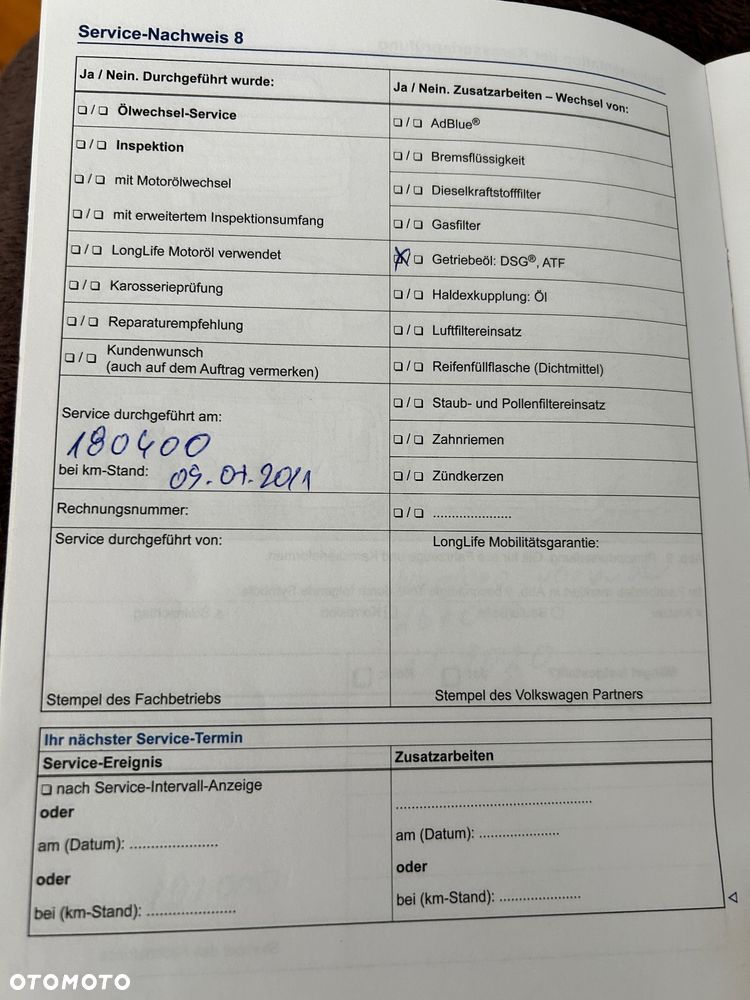 Service-Nachweis 8
Ja / Nein. Durchgeführt wurde:
❏ / ❏ Ölwechsel-Service
❏ / ❏ Inspektion
❏ / ❏ mit Motorölwechsel
❏ / ❏ mit erweitertem Inspektionsumfang
❏ / ❏ LongLife Motoröl verwendet
❏ / ❏ Karosserieprüfung
❏ / ❏ Reparaturempfehlung
❏ / ❏ Kundenwunsch
(auch auf dem Auftrag vermerken)
Service durchgeführt am:
180400
bei km-Stand: 09.01.2011
Rechnungsnummer:
Service durchgeführt von:
Stempel des Fachbetriebs
Ja / Nein. Zusatzarbeiten – Wechsel von:
❏ / ❏ AdBlue®
❏ / ❏ Bremsflüssigkeit
❏ / ❏ Dieselkraftstofffilter
❏ / ❏ Gasfilter
☒ / ❏ Getriebeöl: DSG®, ATF
❏ / ❏ Haldexkupplung: Öl
❏ / ❏ Luftfiltereinsatz
❏ / ❏ Reifenfüllflasche (Dichtmittel)
❏ / ❏ Staub- und Pollenfiltereinsatz
❏ / ❏ Zahnriemen
❏ / ❏ Zündkerzen
❏ / ❏ .....................
LongLife Mobilitätsgarantie:
Stempel des Volkswagen Partners
Ihr nächster Service-Termin
Service-Ereignis
❏ nach Service-Intervall-Anzeige
oder
am (Datum): .......................
oder
bei (km-Stand): .......................
Zusatzarbeiten
....................................................
am (Datum): .....................
oder
bei (km-Stand): .....................
OTOMOTO